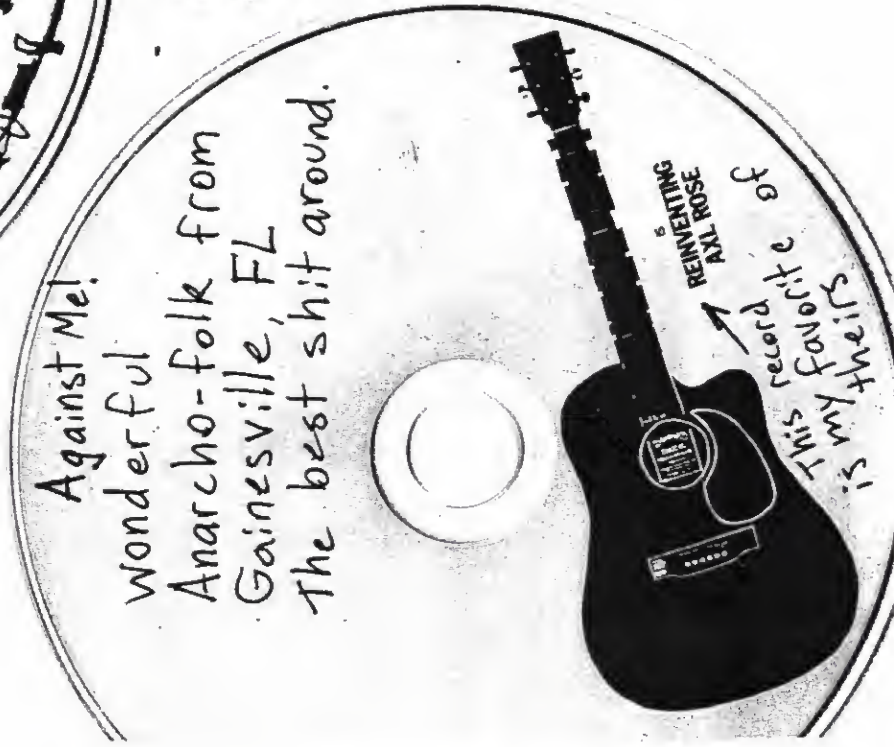 Against Me!
wonderful
Anarcho-folk from
Gainesville, FL
The best shit around.
REINVENTING
AXL ROSE
This record
is my favorite of
theirs